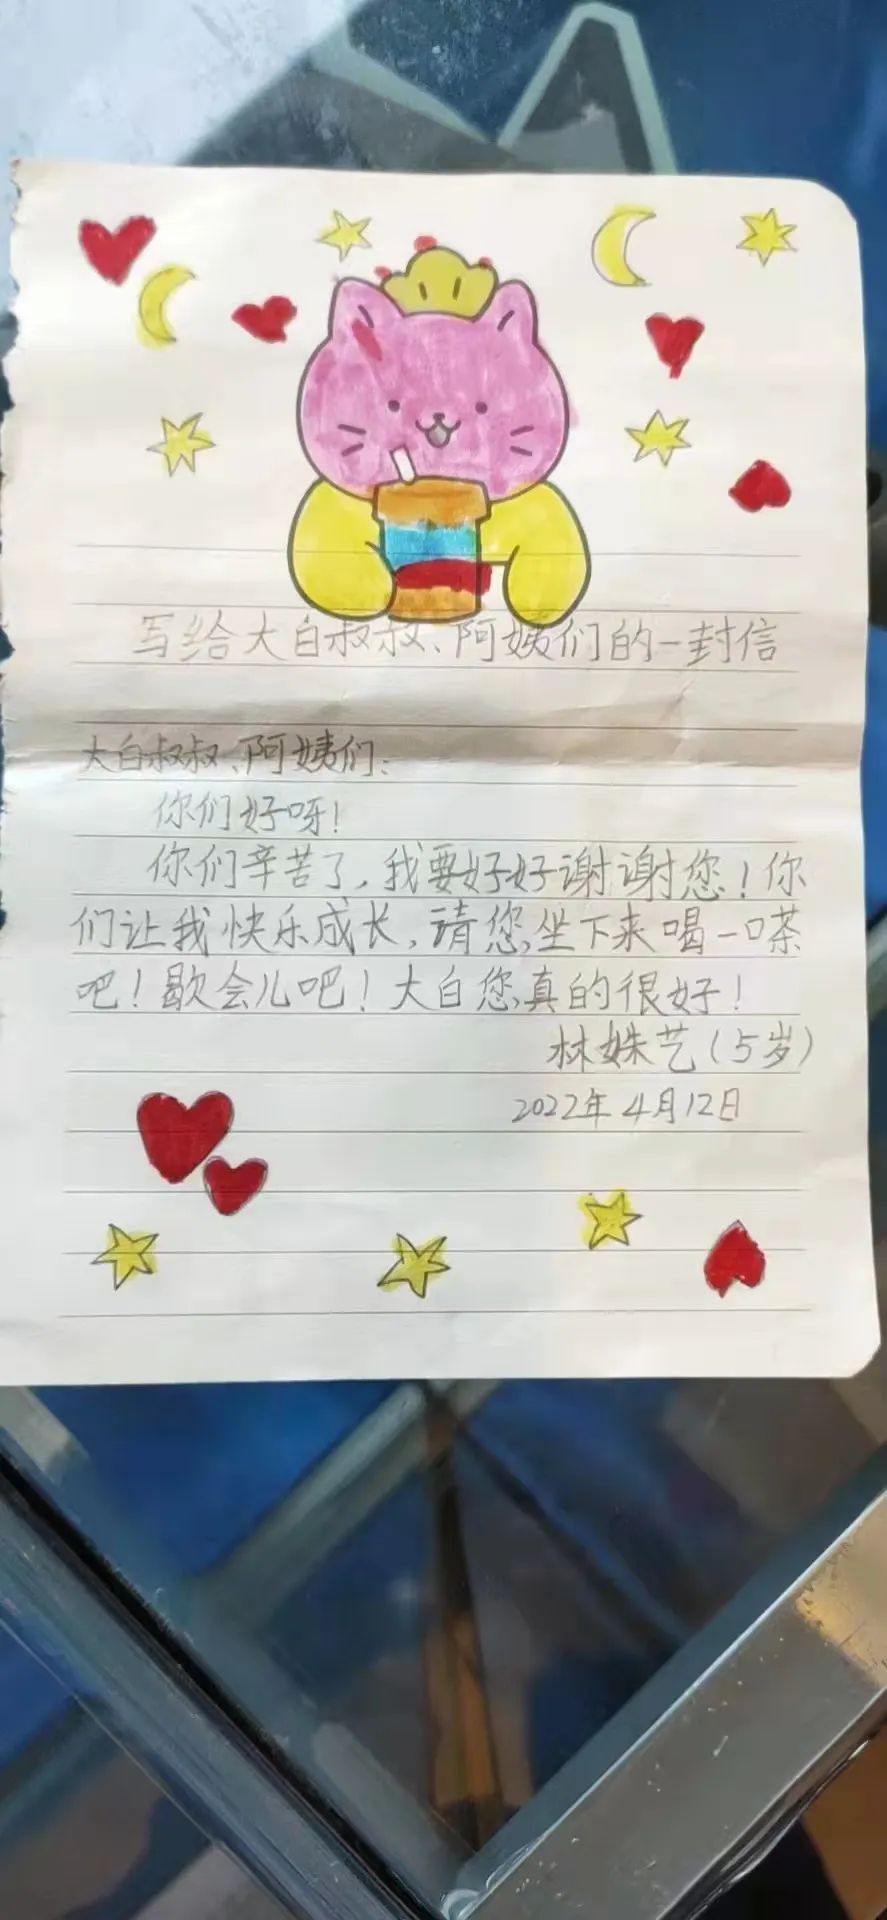 写给大白叔叔、阿姨们的一封信
大白叔叔、阿姨们：
你们好呀！
你们辛苦了，我要好好谢谢您！你
们让我快乐成长，请您，坐下来喝一口茶
吧！歇会儿吧！大白您，真的很好！
林姝艺（5岁）
2022年4月12日